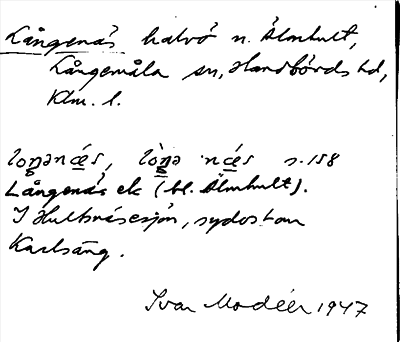 Långenäs halvö n. Älmhult,
Långemåla sn, Handbörds hd,
Klm. l.
loŋənæ̀s, lòŋə næ̀s s. 158
Långenäs ek (bl. Älmhult).
I Hultsnäsesjön, sydost om
Karlsäng.
Ivar Modéer 1947